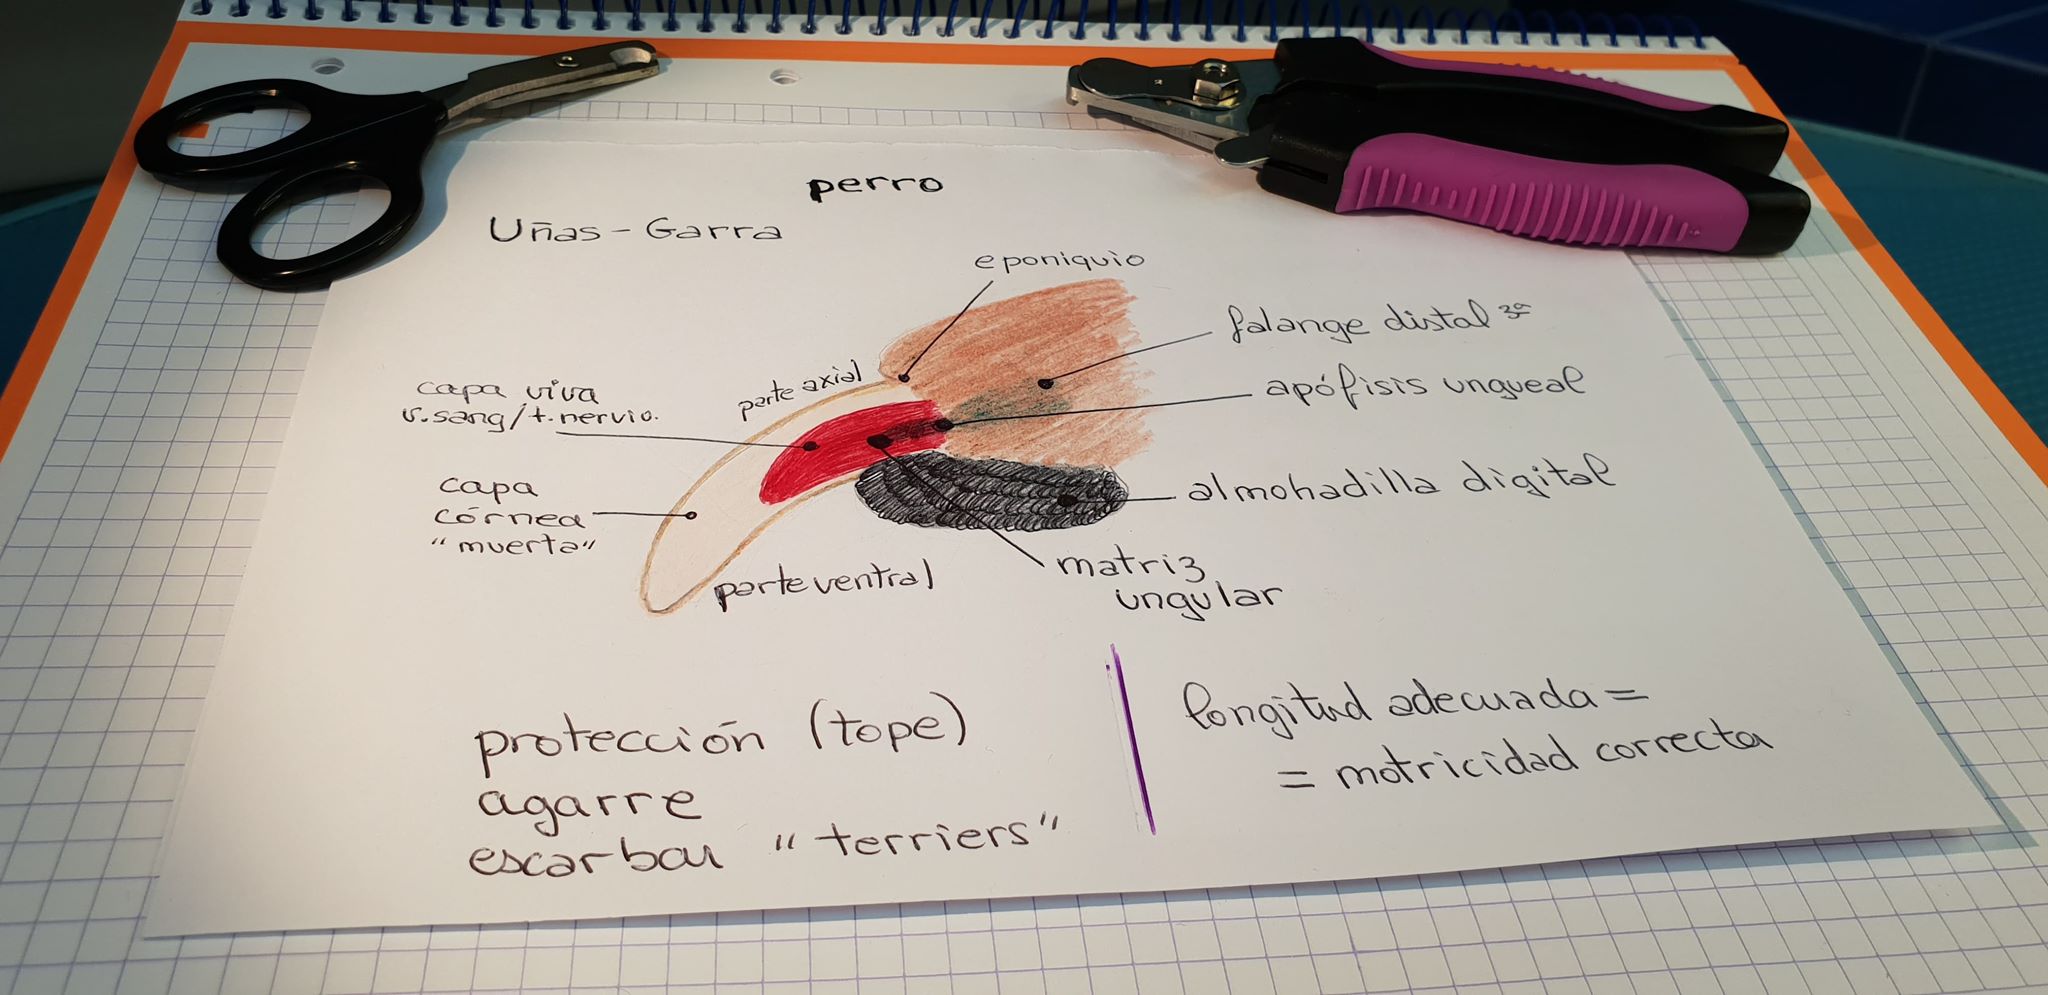 perro
Uñas - Garra
eponiquio
falange distal 3ª
parte axial
apófisis ungueal
capa viva
v.sang/t.nervio.
capa
córnea
"muerta"
almohadilla digital
parte ventral
matriz
ungular
protección (tope)
agarre
escarbar "terriers"
longitud adecuada =
= motricidad correcta